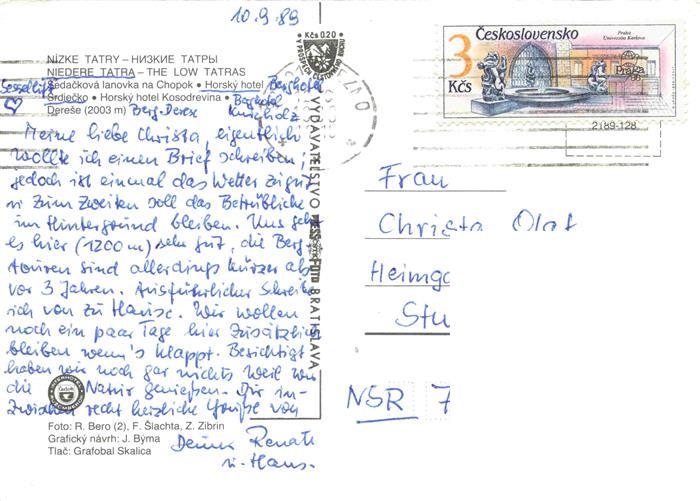 10.9.89
Kčs 0.20
NÍZKE TATRY – НИЗКИЕ ТАТРЫ
NIEDERE TATRA – THE LOW TATRAS
Sessellift
Sedačková lanovka na Chopok • Horský hotel
Berghotel
Srdiečko • Horský hotel Kosodrevina •
Berghotel
Dereše (2003 m) Berg-Derex
Meine liebe Christa, eigentlich
wollte ich einen Brief schreiben,
jedoch ist einmal das Wetter zu gut
u zum Zweiten soll das Betrübliche
im Hintergrund bleiben. Uns geht
es hier (1200 m) sehr gut, die Berg-
touren sind allerdings kürzer als
vor 3 Jahren. Ausführlicher schreibe
ich von zu Hause. Wir wollen
noch ein paar Tage hier zusätzlich
bleiben wenn's klappt. Besichtigt
haben wir noch gar nichts weil wir
die Natur genießen. Dir in-
zwischen recht herzliche Grüße von
Deiner Renate
u. Hans.
Foto: R. Bero (2), F. Šlachta, Z. Zibrin
Grafický návrh: J. Býma
Tlač: Grafobal Skalica
VYDAVATEĽSTVO BRATISLAVA
Československo
3
Kčs
Praha
Univerzita Karlova
2189-128
Frau
Christa Olat
Heimga
Stu
NSR 7